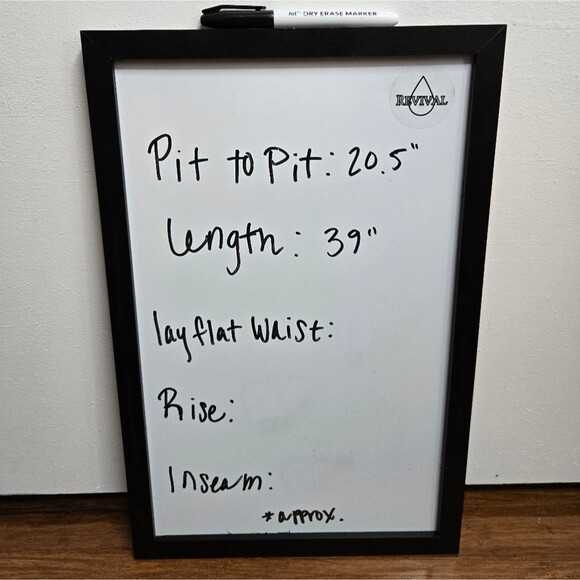 DRY ERASE MARKER
REVIVAL
Pit to Pit: 20.5"
Length: 39"
layflat Waist:
Rise:
Inseam:
*approx.